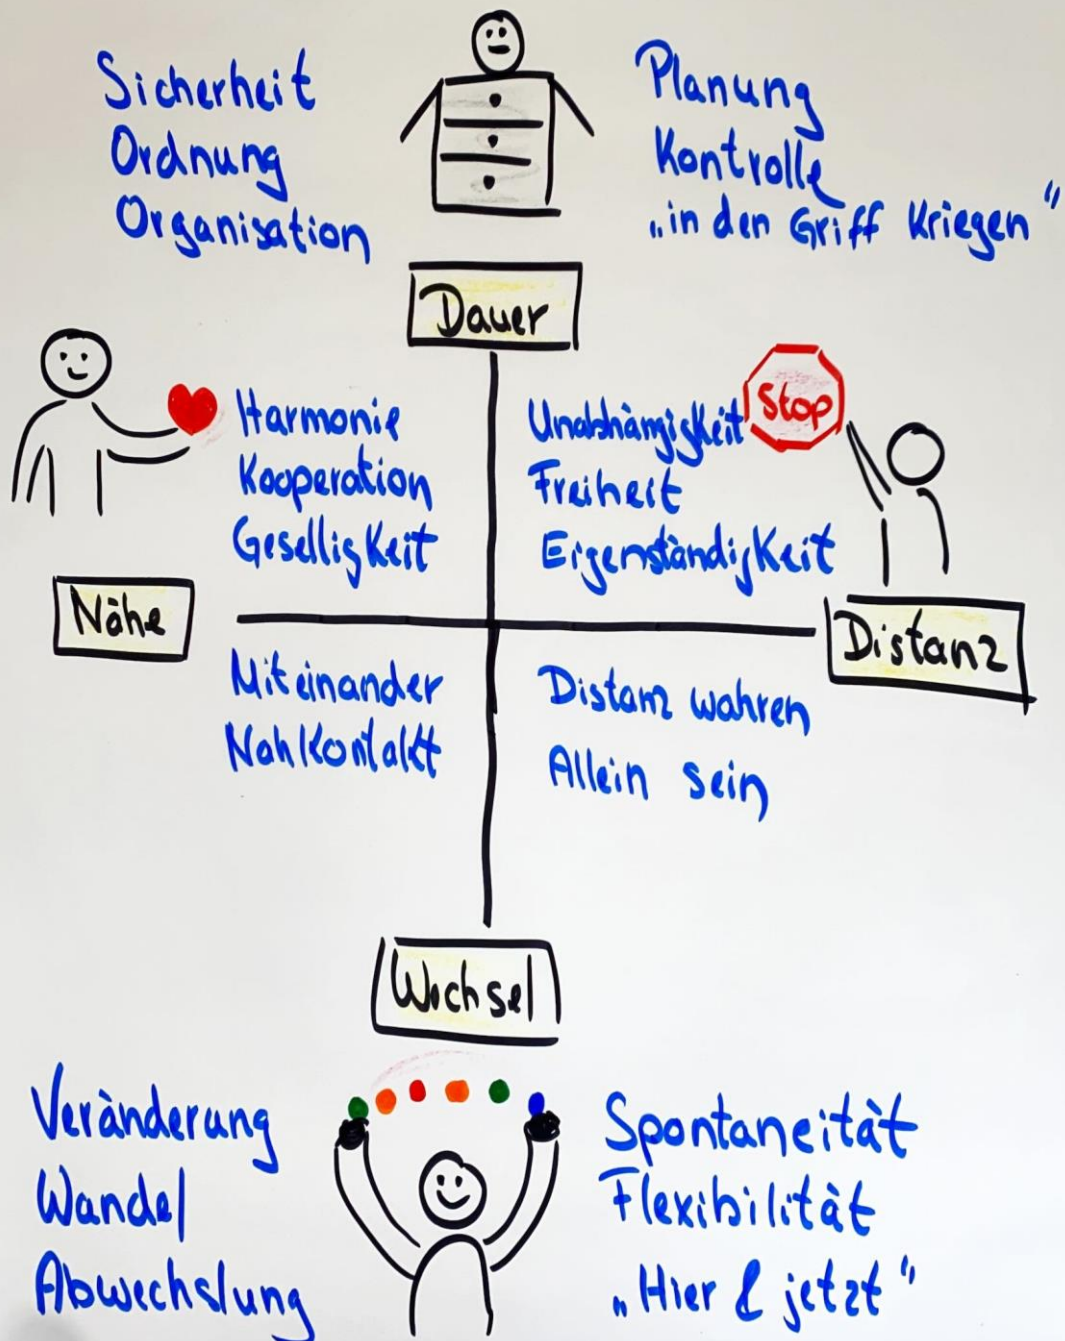 Sicherheit
Ordnung
Organisation
Planung
Kontrolle
„in den Griff kriegen"
Dauer
Harmonie
Kooperation
Geselligkeit
Unabhängigkeit
Freiheit
Eigenständigkeit
Stop
Nähe
Distanz
Miteinander
Nahkontakt
Distanz wahren
Allein sein
Wechsel
Veränderung
Wandel
Abwechslung
Spontaneität
Flexibilität
„Hier & jetzt"